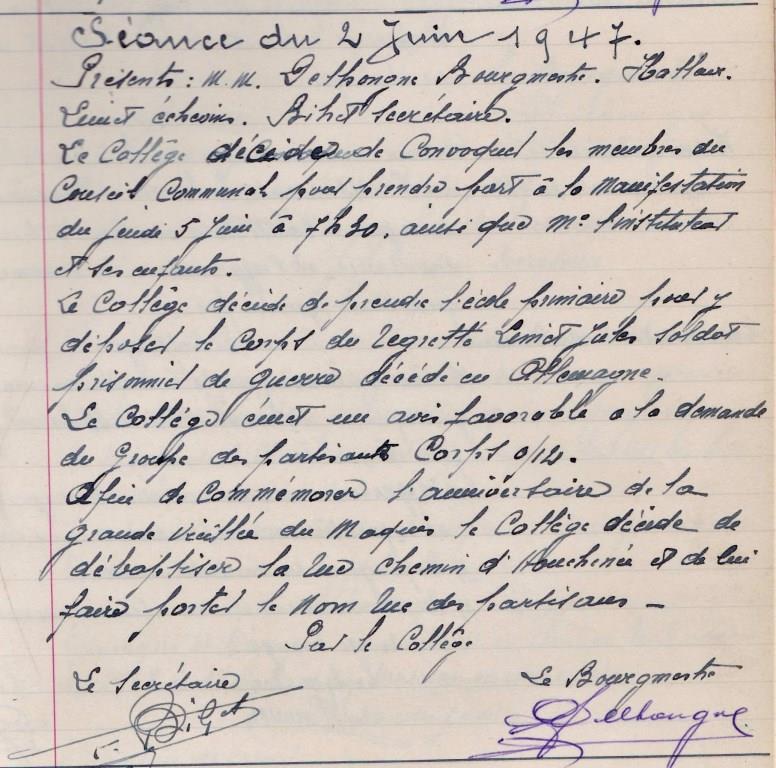 Séance du 2 Juin 1947.
Présents : M.M. Delhongne Bourgmestre. Hallaux.
Limet échevins. Bihet Secrétaire.
Le Collège décide de Convoquer les membres du
Conseil Communal pour prendre part à la Manifestation
du jeudi 5 Juin à 7h30. ainsi que Mr l'instituteur
et ses enfants.
Le Collège décide de prendre l'école primaire pour y
déposer le Corps du regretté Limet Jules Soldat
prisonnier de guerre décédé en Allemagne.
Le Collège émet un avis favorable a la demande
du Groupe des partisants Corps 012.
Afin de Commémorer l'anniversaire de la
grande veillée du Maquis le Collège décide de
débaptiser la rue chemin d'Houchenée et de lui
faire porter le Nom rue des partisans -
Par le Collège
Le Secrétaire Le Bourgmestre
Bihet Delhongne